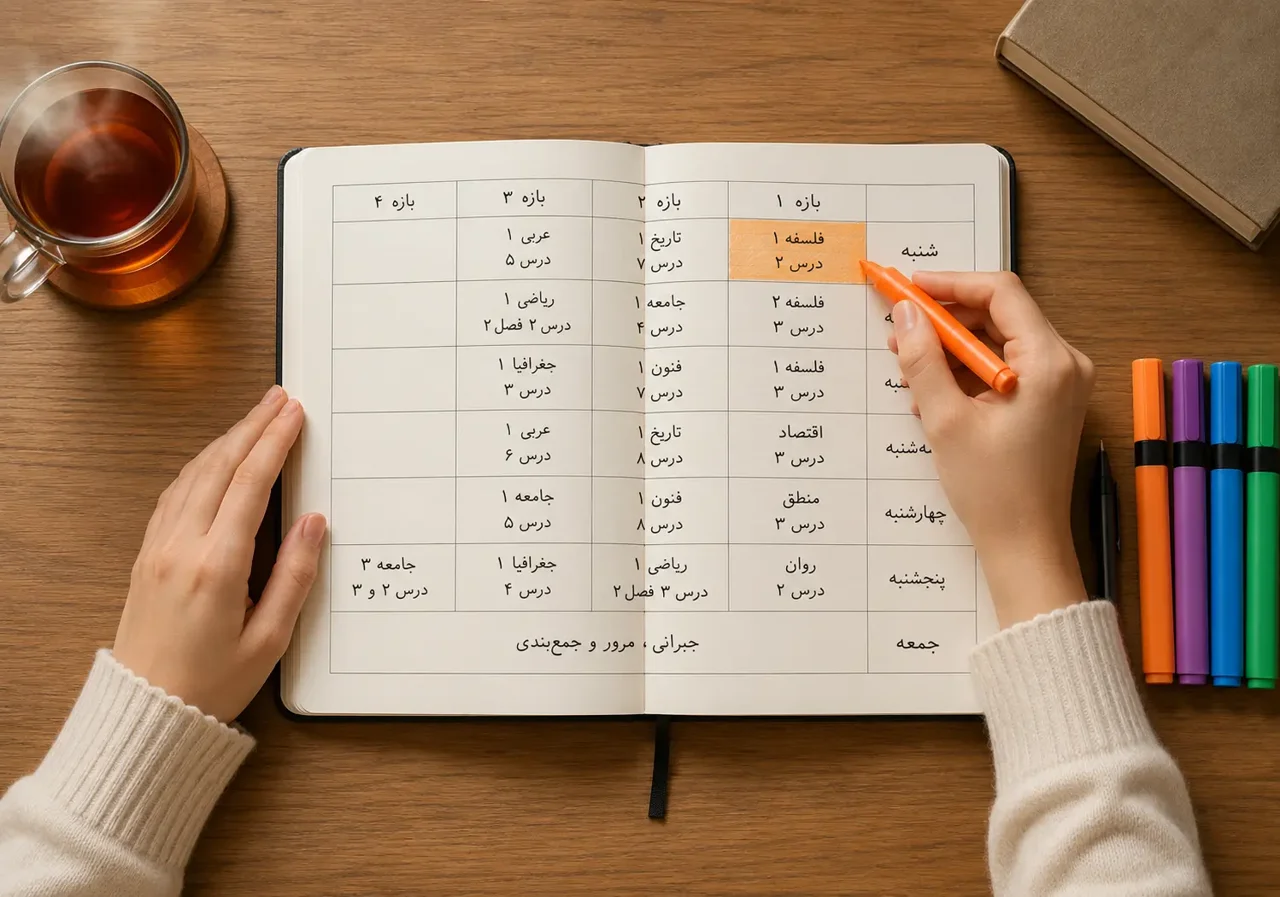 بازه ۱
بازه ۲
بازه ۳
بازه ۴
شنبه
فلسفه ۱
درس ۲
تاریخ ۱
درس ۷
عربی ۱
درس ۵
فلسفه ۲
درس ۳
جامعه ۱
درس ۴
ریاضی ۱
درس ۲ فصل ۲
فلسفه ۱
درس ۳
فنون ۱
درس ۷
جغرافیا ۱
درس ۳
سه‌شنبه
اقتصاد
درس ۳
تاریخ ۱
درس ۸
عربی ۱
درس ۶
چهارشنبه
منطق
درس ۳
فنون ۱
درس ۸
جامعه ۱
درس ۵
پنجشنبه
روان
درس ۲
ریاضی ۱
درس ۳ فصل ۲
جغرافیا ۱
درس ۴
جامعه ۳
درس ۲ و ۳
جمعه
جبرانی، مرور و جمع‌بندی